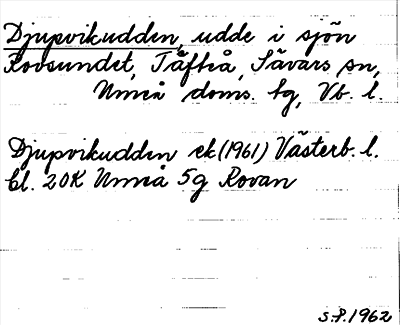 Djupvikudden, udde i sjön
Rovsundet, Täfteå, Sävars sn,
Umeå doms. tg, Vb. l.
Djupvikudden ek (1961) Västerb. l.
bl. 20K Umeå 5g Rovan
S.P. 1962